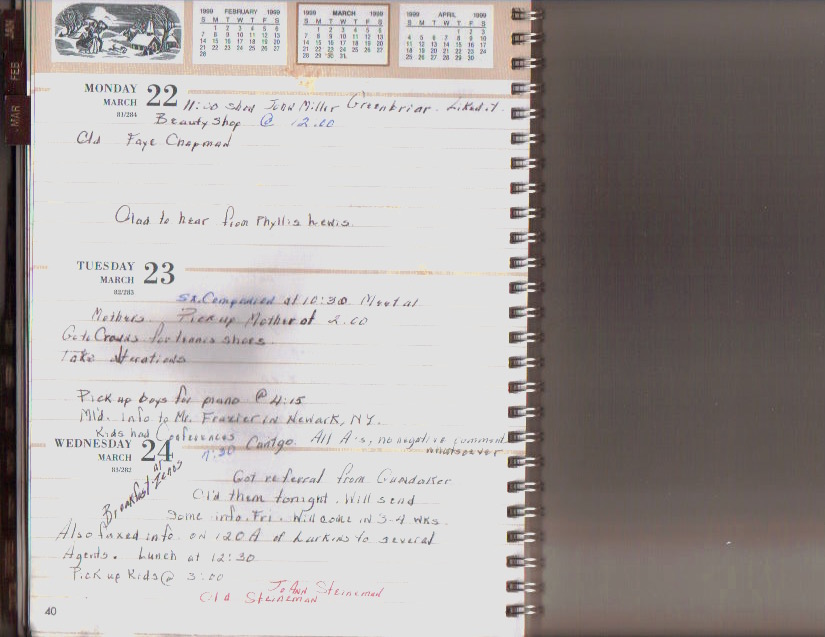 1999 FEBRUARY 1999
S M T W T F S
1 2 3 4 5 6
7 8 9 10 11 12 13
14 15 16 17 18 19 20
21 22 23 24 25 26 27
28
1999 MARCH 1999
S M T W T F S
1 2 3 4 5 6
7 8 9 10 11 12 13
14 15 16 17 18 19 20
21 22 23 24 25 26 27
28 29 30 31
1999 APRIL 1999
S M T W T F S
1 2 3
4 5 6 7 8 9 10
11 12 13 14 15 16 17
18 19 20 21 22 23 24
25 26 27 28 29 30
JAN
FEB
MAR
MONDAY 22
MARCH
81/284
11:00 Show John Miller Greenbriar. Liked it.
Beauty Shop @ 12.00
Cld Faye Chapman
Glad to hear from Phyllis Lewis.
TUESDAY 23
MARCH
82/283
at 10:30 Meet at
Mothers. Pick up Mother at 2.00
Go to Crowds for tennis shoes.
Take alterations
Pick up boys for piano @ 4:15
Ml'd. info to Mr. Frazier in Newark, NY.
Kids had Conferences All A's, no negative comment
whatsoever
WEDNESDAY 24
MARCH
83/282
7:30
Breakfast at
Got referral from
Cld them tonight. Will send
some info. Fri. Will come in 3-4 wks.
Also faxed info. on 120 A of Larkins to several
Agents. Lunch at 12:30
Pick up Kids @ 3:00
JoAnn Steineman
Cld Steineman
40